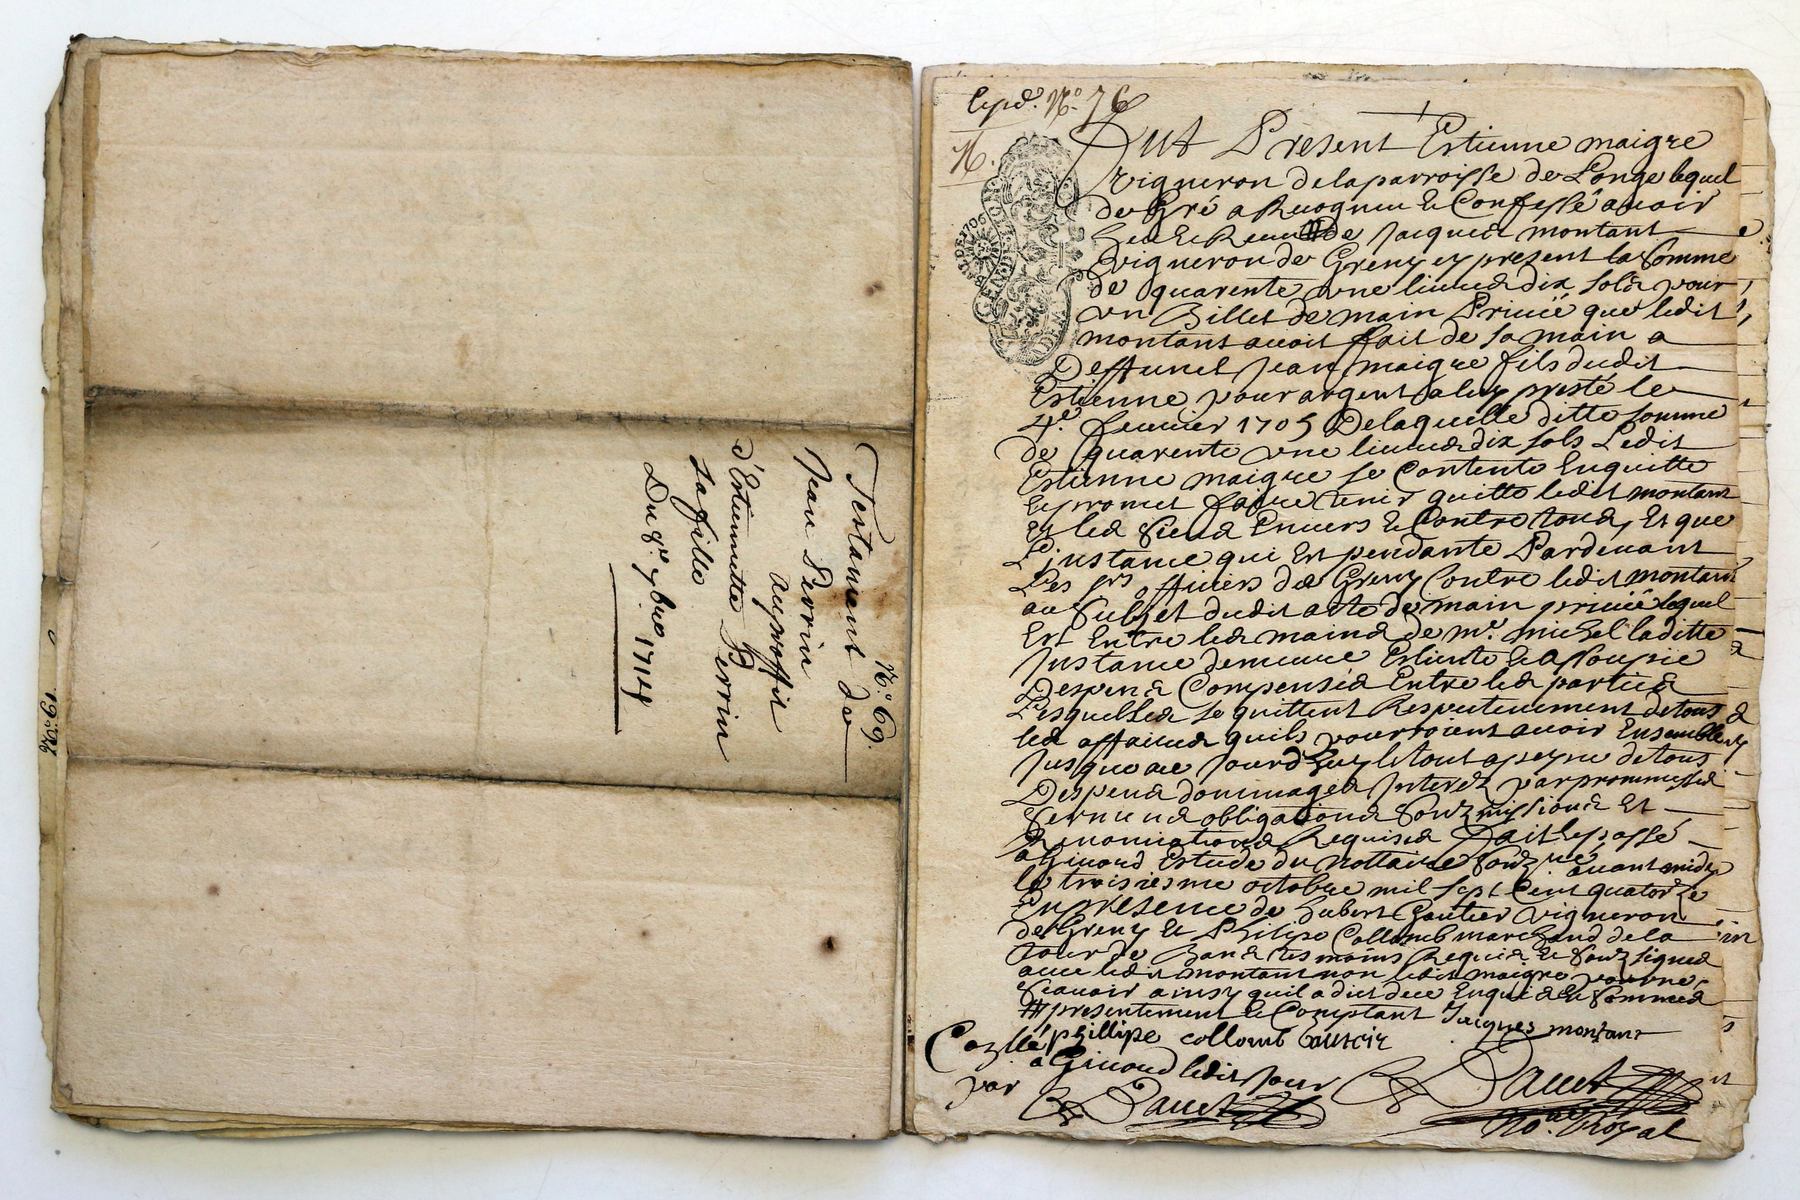 Testament de
Jean Perrin
au proffit
d'Estiennette Perrin
sa fille
Du 8e. 7bre 1714
No. 69.
Exp.de No. 76
Fut Present Estienne maigre
vigneron de la parroisse de Longe lequel
de Gré a Recogneu et Confessé avoir
heu et Receu # de Jacques montant
vigneron de Greny cy present la Somme
de quarente une livres dix sols pour
un Billet de main Privée que ledit
montant avoit fait de sa main a
Deffunct Jean maigre fils dudit
Estienne pour argent a luy presté le
4e. fevrier 1705 De laquelle ditte somme
de quarente une livres dix sols Ledit
Estienne maigre se Contente En quitte
Et promet faire tenir quitte ledit montant
et les Siens Envers et Contre tous, Et que
L'instance qui Est pendante Pardevant
Les srs officiers de Greny Contre ledit montant
au Subjet dudit acte de main privée lequel
Est Entre les mains de mr. michel laditte
Instance demeure Esteinte et assoupie
Despens Compensés Entre les parties
Lesquelles se quittent Respectivement de tous
les affaires quils pourroient avoir Ensemble
Jusque a ce Jourd'huy le tout a peyne de tous
Despens dommages Interez par prommesses
Serments obligations Soubzmissions Et
Renonciations Requises Fait et passé
a Givord Estude du Nottaire Soubzné. avant midy
le troisiesme octobre mil sept Cent quatorze
En presence de hubert Gautier vigneron
de Greny et Philipe Collomb marchand de la
tour de tesmoins Requis et Soubzsignes
avec ledit montant non ledit maigre pour ne
Scavoir ainsy quil a dict de ce Enquis et Sommés
# presentement et Comptant Jacques montant
phillipe collomb Gautier
Conllé
a Givord ledit Jour
par
no.re Royal